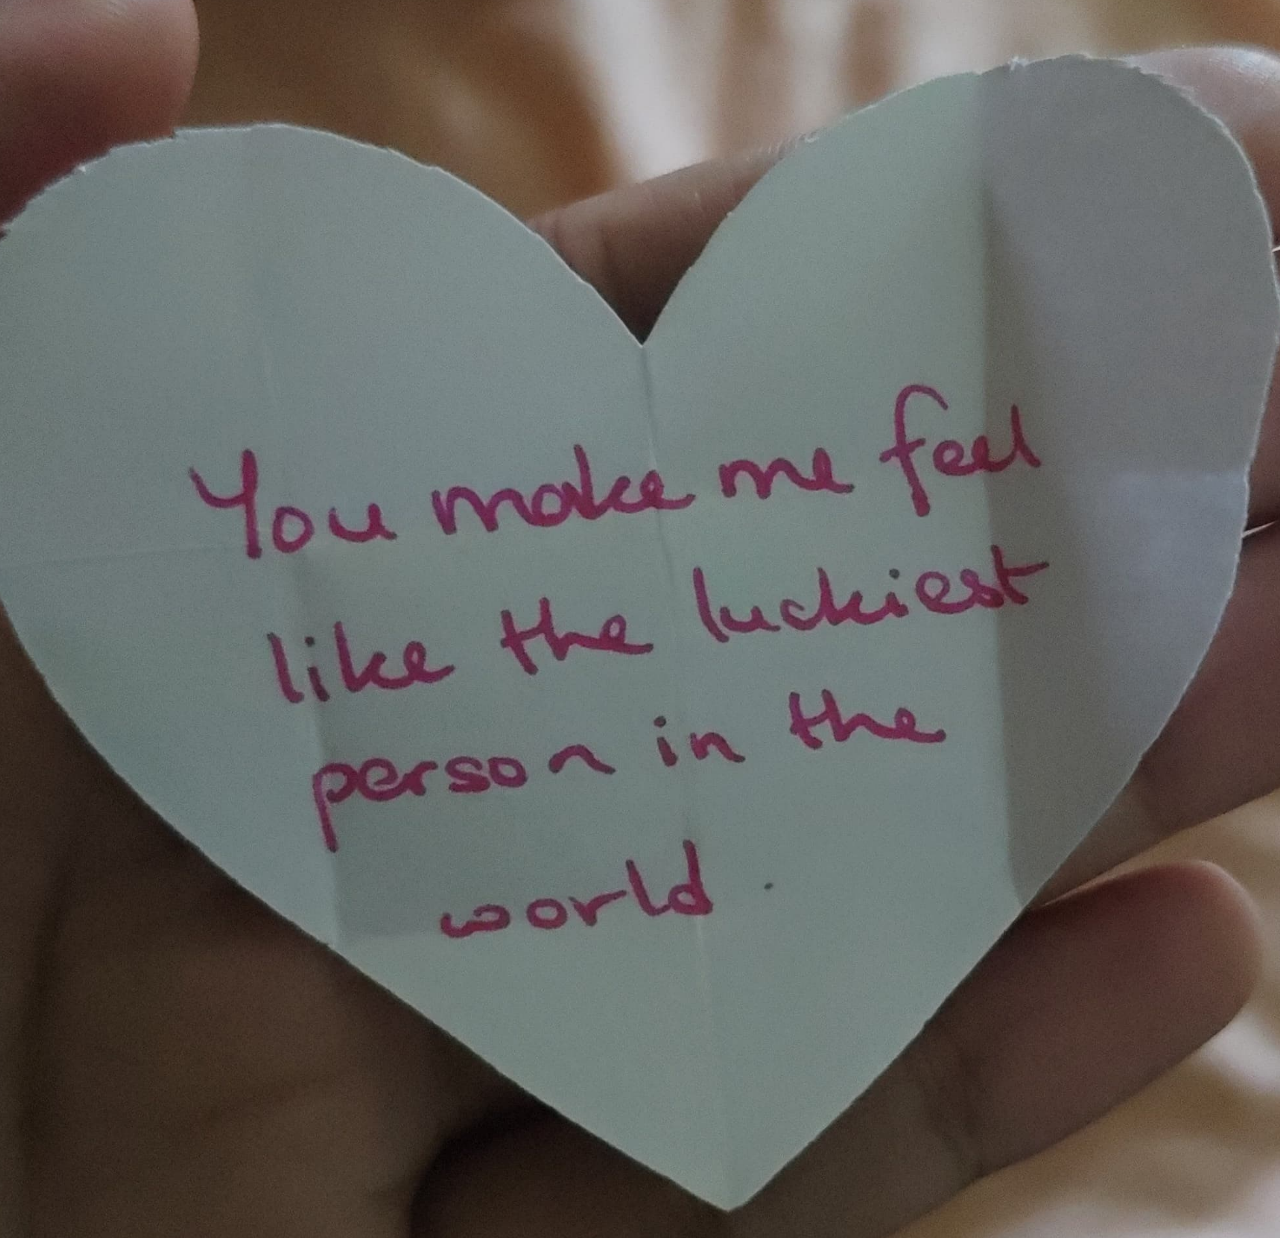 You make me feel
like the luckiest
person in the
world.